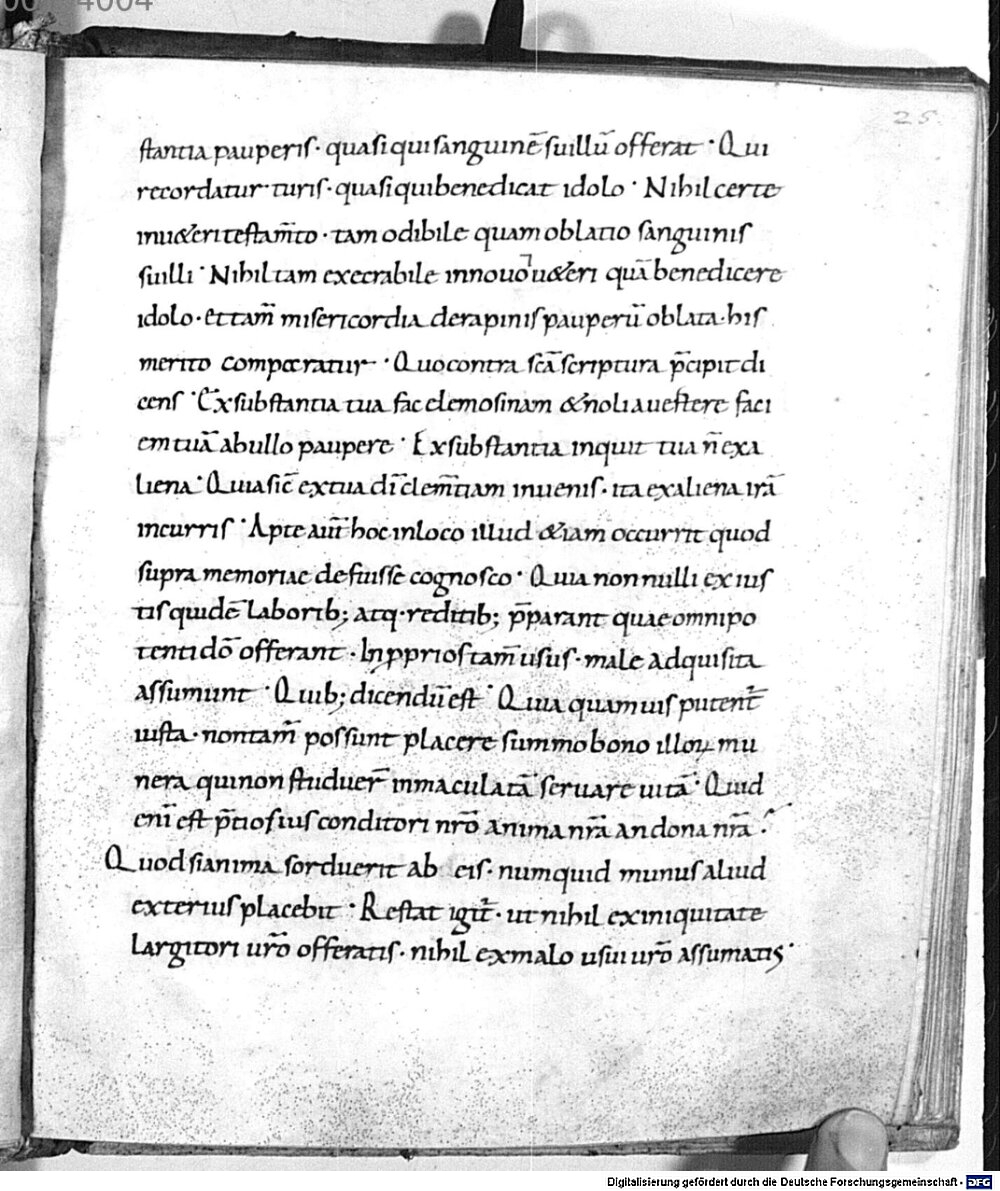 25
stantia pauperis· quasi qui sanguinē suillū offerat · Qui
recordatur turis· quasi qui benedicat idolo · Nihil certe
in u&eri testam̄to · tam odibile quam oblatio sanguinis
suilli · Nihil tam execrabile in nouo u&eri quā benedicere
idolo · et tam̄ misericordia de rapinis pauperū oblata· his
merito comparatur · Quo contra scā scriptura p̄cipit di
cens · Ex substantia tua fac elemosinam & noli auertere faci
em tuā ab ullo paupere · Ex substantia inquit tua n̄ ex a
liena· Quia sic̄ ex tua dī clem̄tiam inuenis· ita ex aliena irā
incurris · Apte aut̄ hoc in loco illud &iam occurrit quod
supra memoriae defuisse cognosco · Quia non nulli ex ius
tis quidē laborib; atq· reditib; p̄parant quae omnipo
tenti dō offerant · In ꝓprios tam̄ usus· male adquisita
assumunt · Quib; dicendū est · Quia quamuis putent̄
iusta· non tam̄ possunt placere summo bono illoꝝ mu
nera qui non studuer̄ inmaculatā seruare uitā · Quid
eni̅ est p̄tiosius conditori nr̄o anima nr̄a an dona nr̄a ·
Quod si anima sorduerit ab eis· numquid munus aliud
exterius placebit · Restat igit̄· ut nihil ex iniquitate
largitori ur̄o offeratis· nihil ex malo usui ur̄o assumatis·
Digitalisierung gefördert durch die Deutsche Forschungsgemeinschaft - DFG